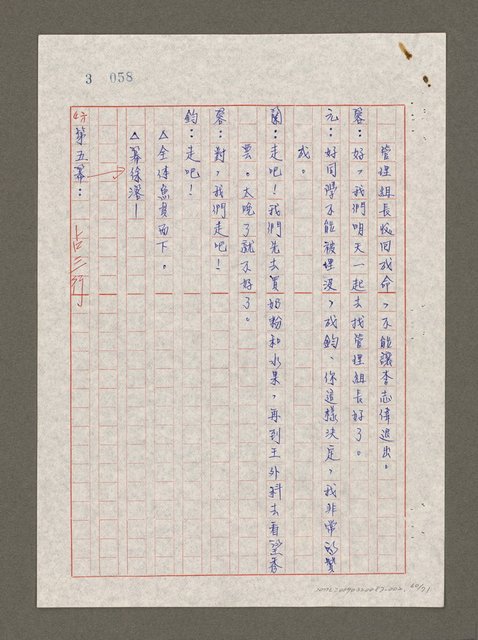 3 058
管理組長收回成命，不能讓李志偉退出。
蓉：好，我們明天一起去找管理組長好了。
元：好同學不能被埋沒，成鈞、你這樣決定，我非常的贊
成。
蘭：走吧！我們先去買奶粉和水果，再到王外科去看望春
雲。太晚了就不好了。
蓉：對，我們走吧！
鈞：走吧！
△全体魚貫而下。
△幕徐落—
第五幕：
占三行